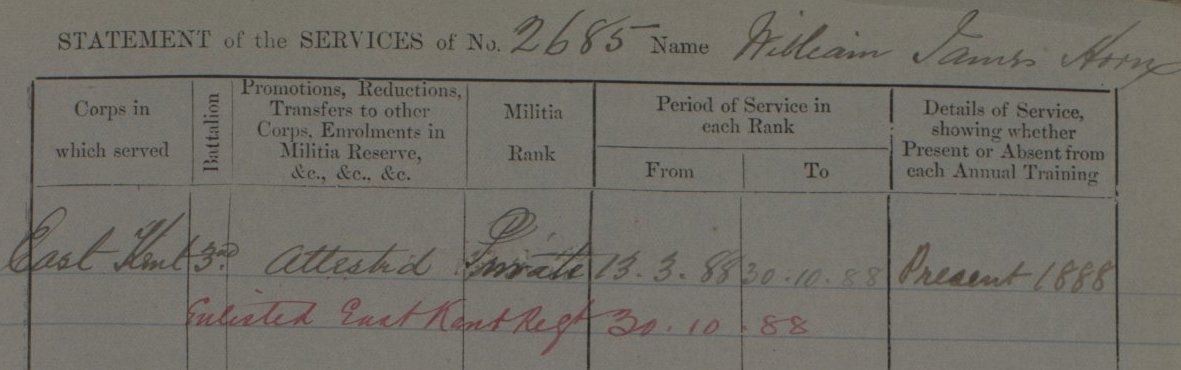 STATEMENT of the SERVICES of No. 2685 Name William James Horn
Corps in which served
Battalion
Promotions, Reductions,
Transfers to other
Corps, Enrolments in
Militia Reserve,
&c., &c., &c.
Militia
Rank
Period of Service in
each Rank
From To
Details of Service,
showing whether
Present or Absent from
each Annual Training
East Kent 3rd Attested Private 13.3.88 30.10.88 Present 1888
Enlisted East Kent Regt 30.10.88